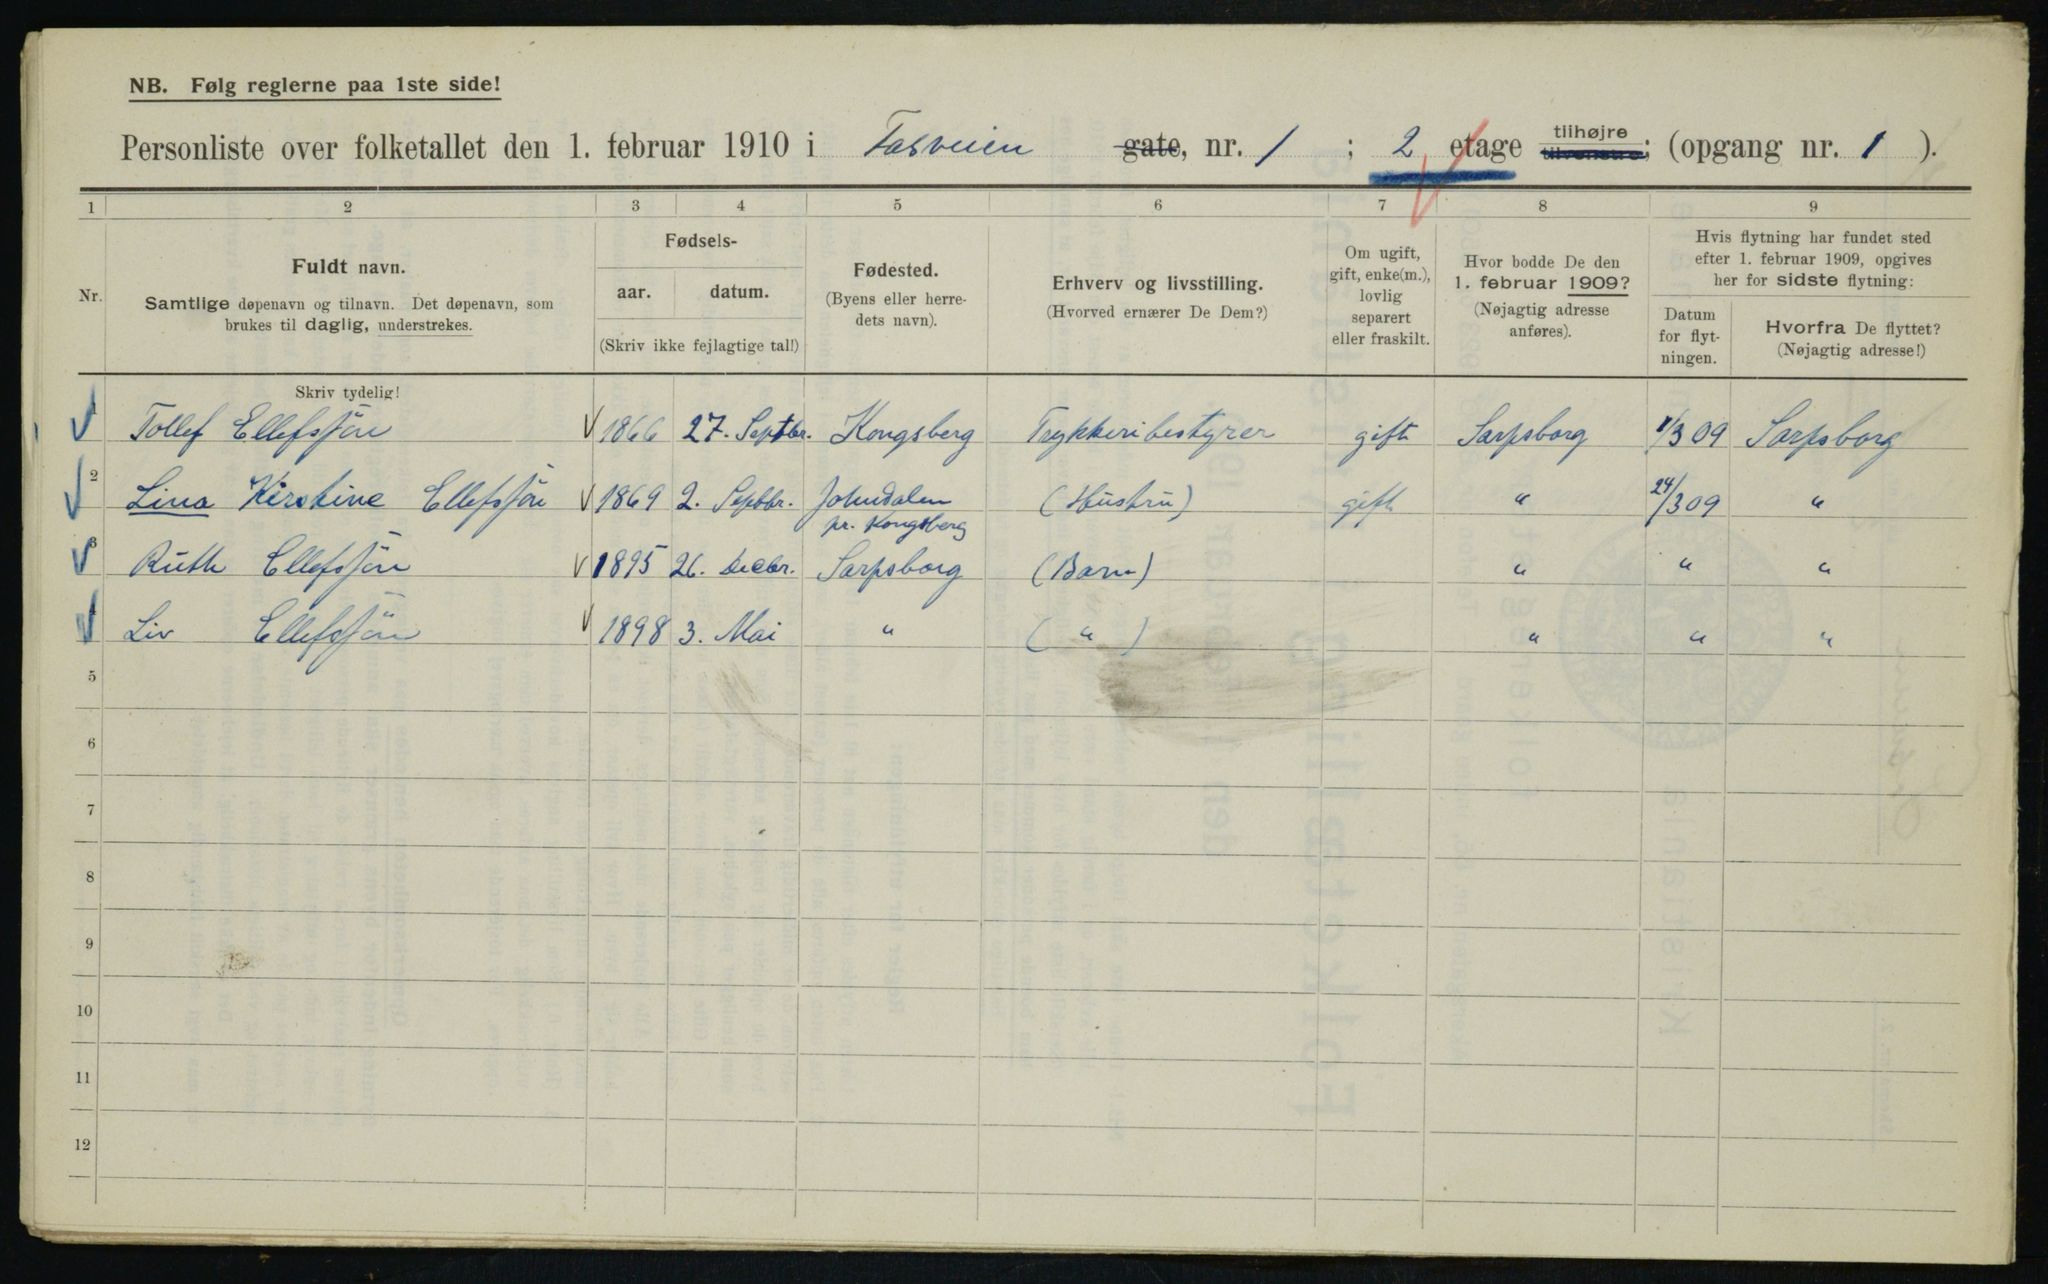 NB. Følg reglerne paa 1ste side!
Personliste over folketallet den 1. februar 1910 i Tasveien gate, nr. 1 ; 2 etage tilhøjre tilvenstre; (opgang nr. 1 ).
1 2 3 4 5 6 7 8 9
Nr.
Fuldt navn.
Samtlige døpenavn og tilnavn. Det døpenavn, som
brukes til daglig, understrekes.
Fødsels-
aar. datum.
(Skriv ikke fejlagtige tal!)
Fødested.
(Byens eller herre-
dets navn).
Erhverv og livsstilling.
(Hvorved ernærer De Dem?)
Om ugift,
gift, enke(m.),
lovlig
separert
eller fraskilt.
Hvor bodde De den
1. februar 1909?
(Nøjagtig adresse
anføres).
Hvis flytning har fundet sted
efter 1. februar 1909, opgives
her for sidste flytning:
Datum
for flyt-
ningen.
Hvorfra De flyttet?
(Nøjagtig adresse!)
Skriv tydelig!
1 Tollef Ellefsjön 1866 27. Septbr. Kongsberg Trykkeribestyrer gift Sarpsborg 1/3 09 Sarpsborg
2 Lina Kirstine Ellefsjön 1869 2. Septbr. Johndalen (Hustru) gift " 24/3 09 "
pr. Kongsberg
3 Ruth Ellefsjön 1895 26. Decbr. Sarpsborg (Barn) " " "
4 Liv Ellefsjön 1898 3. Mai " ( " ) " " "
5
6
7
8
9
10
11
12